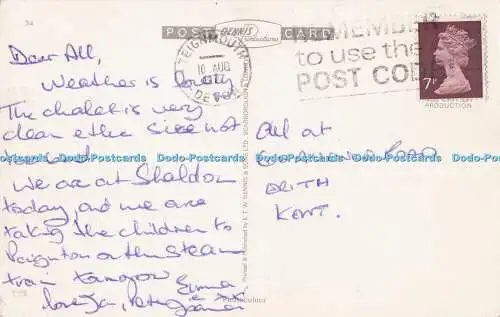 34
POST CARD
DENNIS
Productions
TEIGNMOUTH
10 AUG
1977
DEVON
REMEMBER
to use the
POST CODE
7P
PRODUCTION
Dear All,
Weather is lovely
The chalet is very
clean & the site not
too bad.
We are at Shaldon
today, and we are
taking the children to
Paignton on the steam
train tomorrow
Love Jan, Peter, Emma
& James
All at
ROAD
ERITH
KENT.
Printed & Published by E. T. W. DENNIS & SONS LTD. SCARBOROUGH
Photocolour
Dodo-Postcards Dodo-Postcards Dodo-Postcards Dodo-Postcards